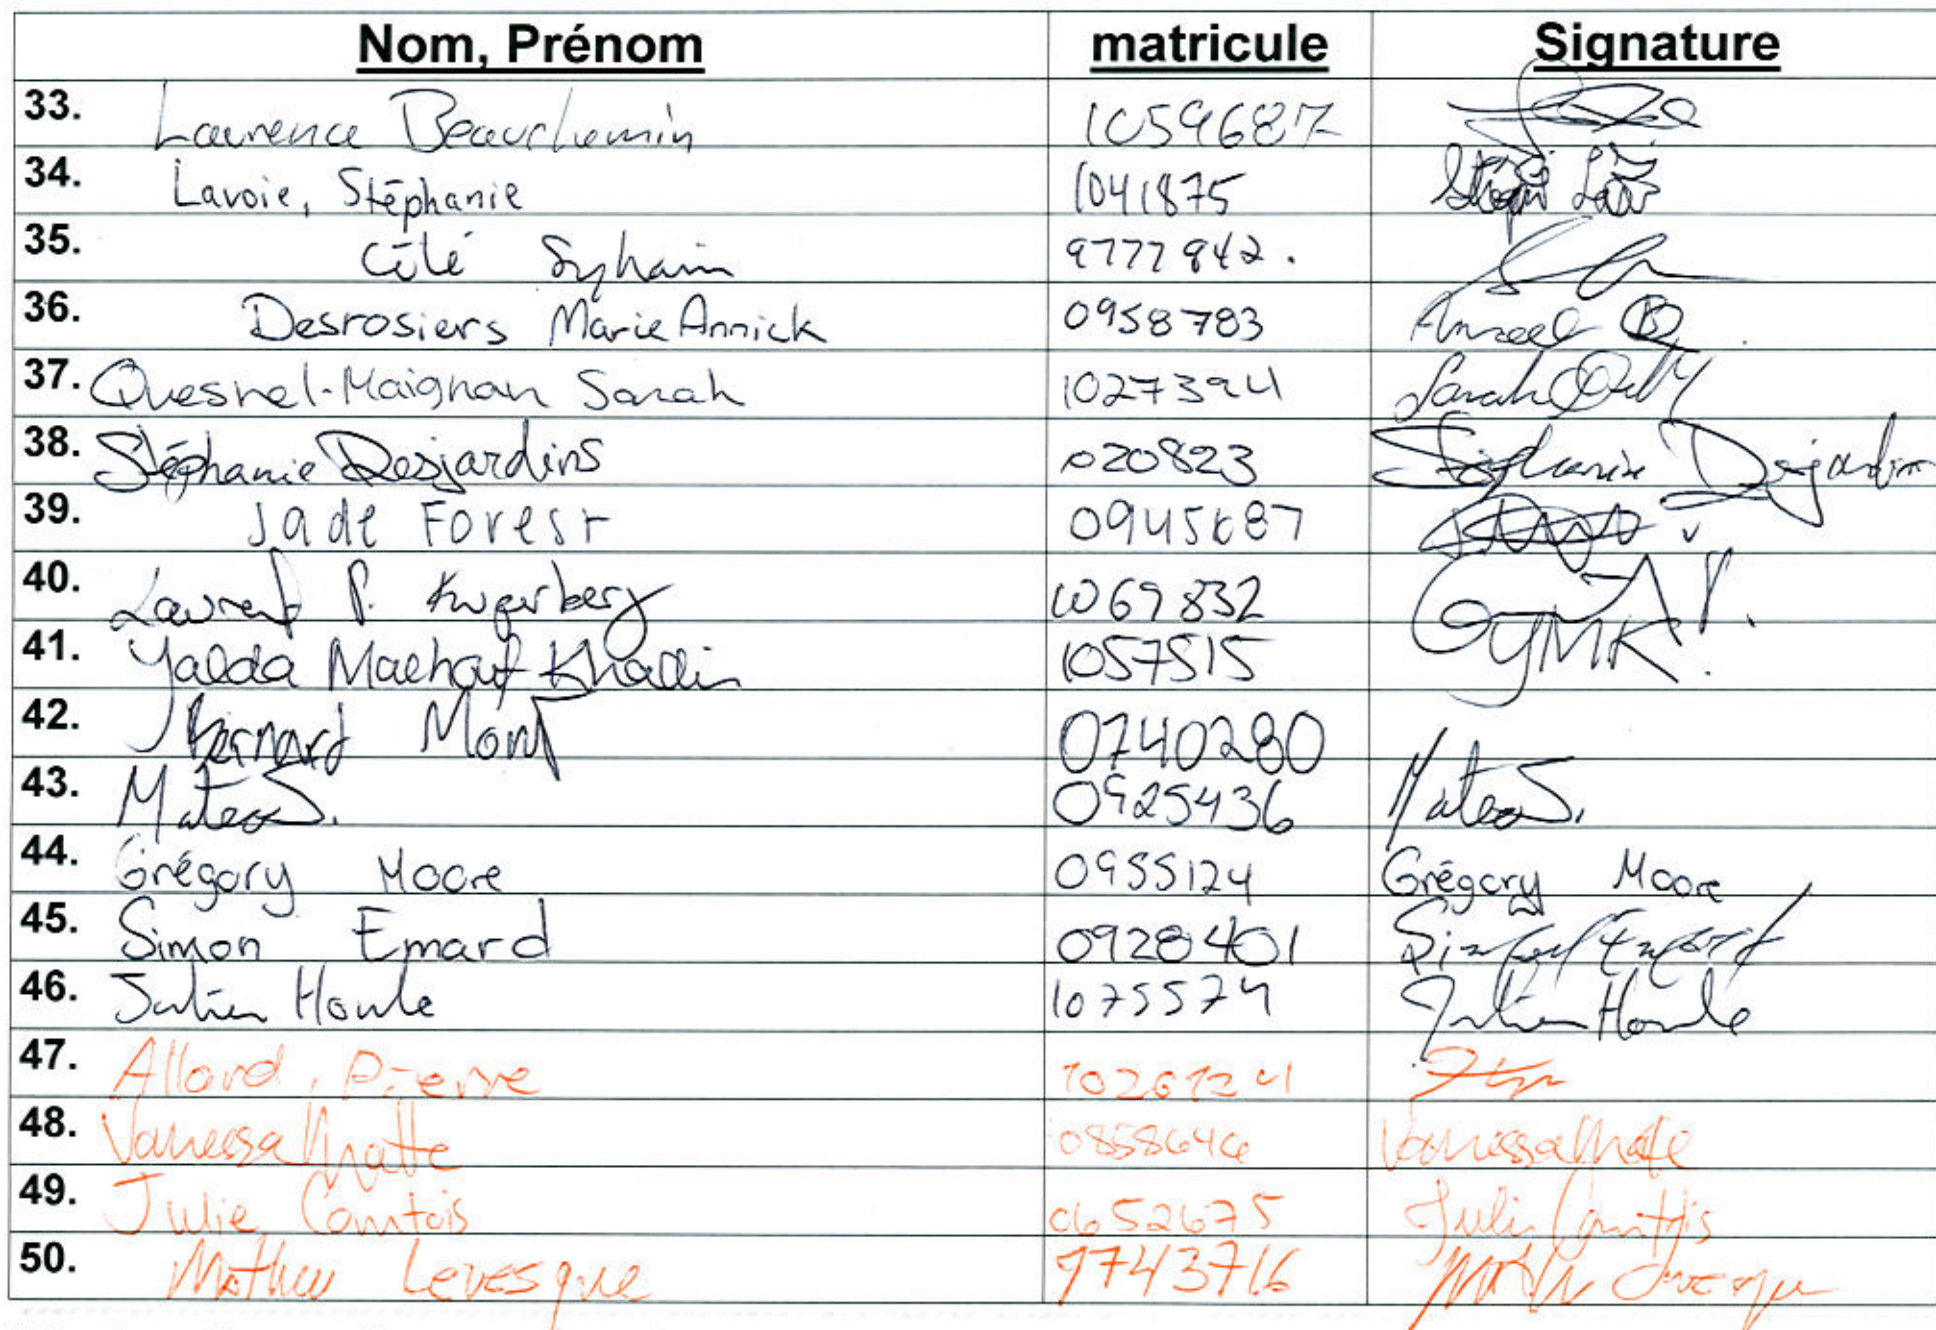 Nom, Prénom matricule Signature
33. Laurence Beauchemin 1059687
34. Lavoie, Stéphanie 1041875
35. Côté Sylvain 9777842.
36. Desrosiers Marie Annick 0958783
37. Quesnel-Maignan Sarah 1027394 Sarah
38. Stéphanie Desjardins 1020823 Stéphanie Desjardins
39. Jade Forest 0945687
40. Laurent P. 1069832
41. Yalda 1057515 YMK.
42. Bernard 0740280
43. Mateo S. 0925436 Mateo S.
44. Grégory Moore 0955124 Grégory Moore
45. Simon Emard 0928401 Simon Emard
46. Julien Houle 1075574 Julien Houle
47. Allard, Pierre
48. Vanessa Matte 0858646 Vanessa Matte
49. Julie Comtois 0652675 Julie Comtois
50. Mathieu Levesque 9743716